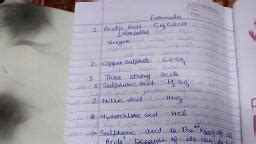 Formula
1 Acetic Acid CH3COOH
Vinegar
2. Copper sulphate : CuSO4
3 Three strong acids
1 Sulphuric acid : H2SO4
2. Nitric acid : HNO3
Hydrochloric acid : HCl
→ Sulphuric acid is the "King of
Acids" because of